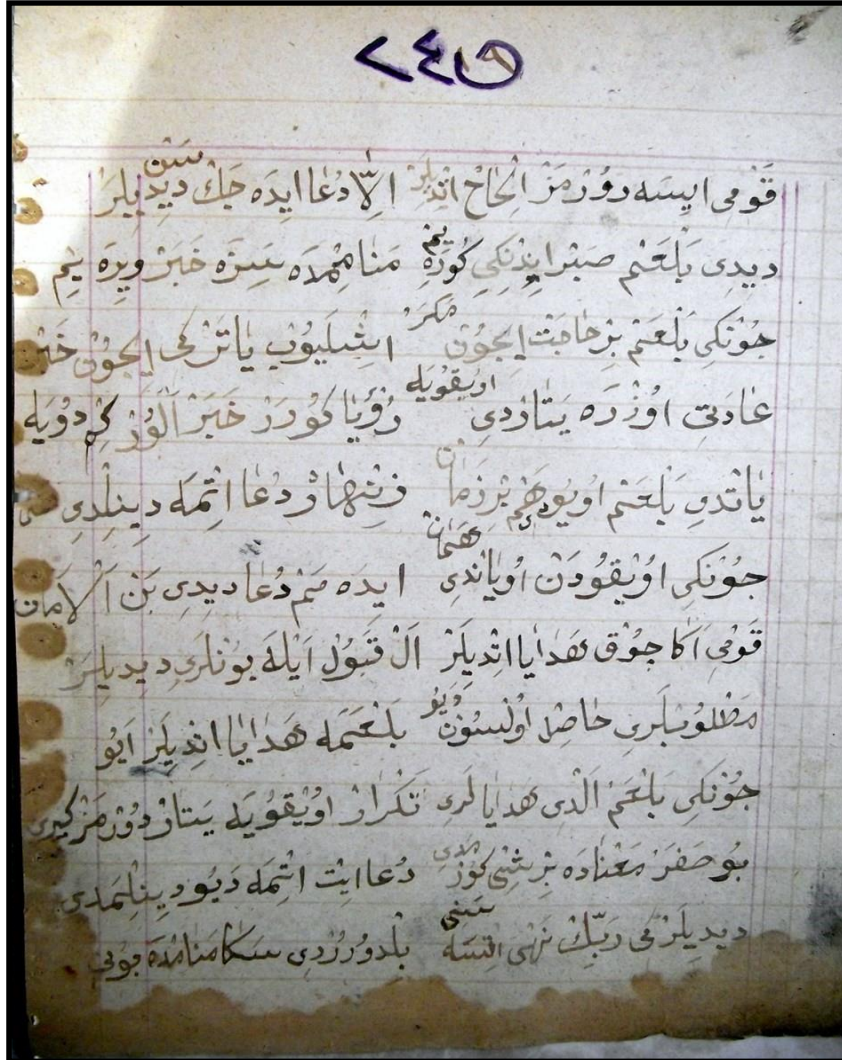 ٢٤٩
قَومِی ایسه دورمَز اِلحَاح اتدیلر اِلّا دُعا ایدَه جَك سَن دیدیلَر
دیدِی بَلعَم صبر ایدِنکِی کورَه یِم مَنامِمدَه سِزَه خَبَر ویرَه یِم
جونکِی بَلعَم بِر حاجَت ایجُون مکر ایشلیوب یاتَر کی ایجُون خَبَر
عادَتِی اوزرَه یَتاردِی اویقویه رُؤیا کورَر خَبَر آلور کِه دویَه
یاتدِی بَلعَم اویودِی هَم بِر زَمان زِنهار دُعا اِتمَه دینِلدِی
جونکِی اویقودَن اویاندِی هَمان ایدَه مَم دُعا دیدِی بَن اَلاَمان
قَومِی اَکا جوق هَدایا اتدیلَر اَل قَبول اَیلَه بونلَرِی دیدیلَر
مَطلوبلَرِی حاصِل اولسون دَیو بَلعَمَه هَدایا اتدیلَر اَیو
جونکِی بَلعَم اَلدِی هَدایالَرِی تَکرار اویقویَه یَتار دورمَز کیرِی
بو صَفَر مَعنادَه بِر شِی کورمَدِی دُعا ایت اتمَه دَیو دینِلمَدِی
دیدیلَر کی رَبِّك نَهی اتسَه سَنِی بِلدورردِی سَکا مَنامدَه بونِی